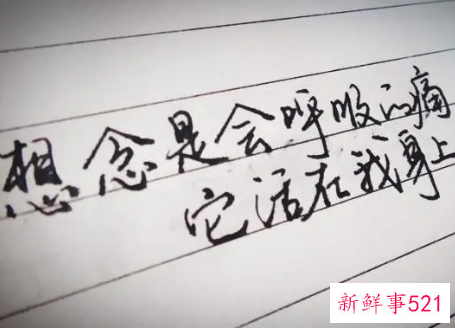 想念是会呼吸的痛
它活在我身上
新鲜事521